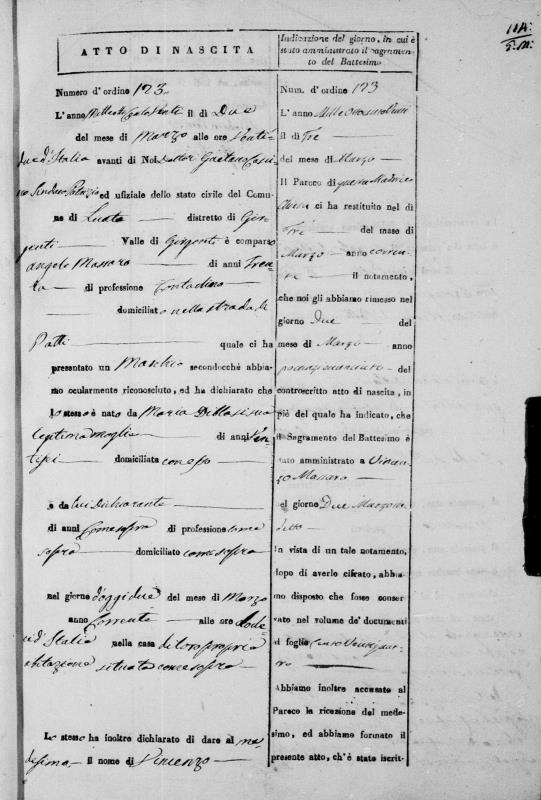 11A:
ATTO DI NASCITA
Numero d'ordine 123
L'anno Mille Ottocento Venti il dì Due
del mese di Marzo alle ore Venti=
due d'Italia avanti di Noi Dottor Gaetano
Sindaco Palazzo ed ufiziale dello stato civile del Comu-
ne di distretto di Gir=
genti Valle di Girgenti è comparso
angelo Massaro di anni Tren=
ta di professione Contadino
domiciliato nella strada di
Patti quale ci ha
presentato un Maschio secondocchè abbia-
mo ocularmente riconosciuto, ed ha dichiarato che
lo stesso è nato da Maria
legitima moglie di anni Ven=
domiciliata con esso
e da lui Dichiarante
di anni Come sopra di professione come
sopra domiciliato come sopra
nel giorno d'oggi due del mese di Marzo
anno Corrente alle ore
d'Italia nella casa di loro propria
abitazione situata come sopra
Lo stesso ha inoltre dichiarato di dare al me=
desimo il nome di Vincenzo
Indicazione del giorno, in cui è
stato amministrato il Sagramen-
to del Battesimo
Num. d'ordine 123
L'anno Mille Ottocento Venti
il dì Tre
del mese di Marzo
Il Paroco di questa Madrice
Chiesa ci ha restituito nel dì
Tre del mese di
Marzo anno corren=
te il notamento,
che noi gli abbiamo rimesso nel
giorno Due del
mese di Marzo anno
del
controscritto atto di nascita, in
piè del quale ha indicato, che
il Sagramento del Battesimo è
stato amministrato a Vincen=
zo Massaro
nel giorno Due Marzo
detto
In vista di un tale notamento,
dopo di averlo cifrato, abbia-
mo disposto che fosse conser-
vato nel volume de' documenti
al foglio Cento Venti
tro
Abbiamo inoltre accusato al
Paroco la ricezione del mede-
simo, ed abbiamo formato il
presente atto, ch'è stato iscrit-